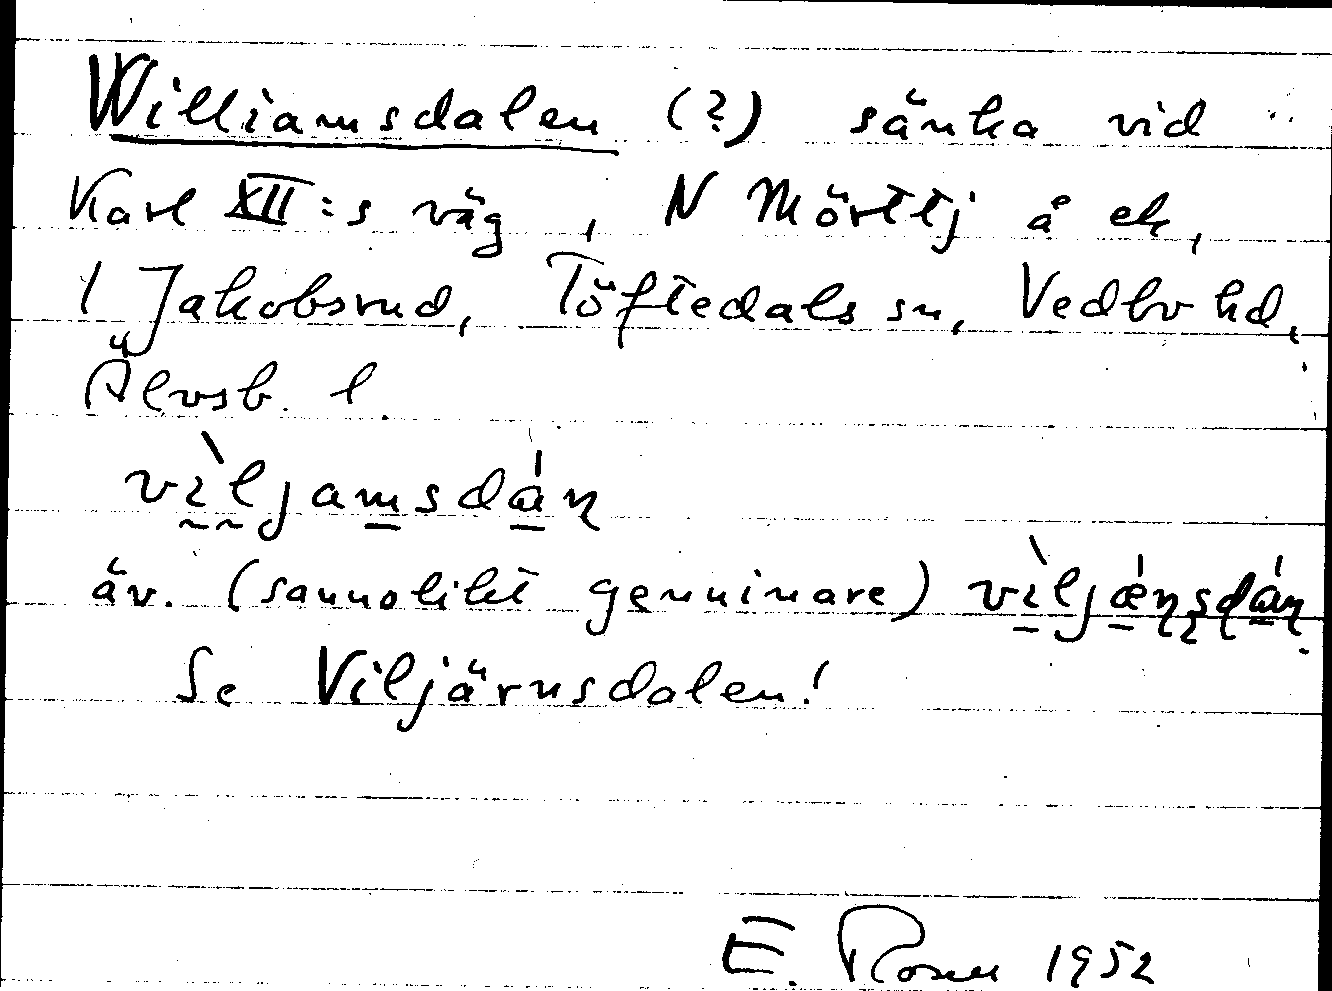 Williamsdalen (?) sänka vid
Karl XII:s väg, N Mörttj å ek,
1 Jakobsrud, Töftedals sn, Vedbo hd,
Älvsb. l.
vìljamsdáɳ
äv. (sannolikt genuinare) vìljǽɳʂɖáɳ.
Se Viljärnsdalen!
E. Rosen 1952